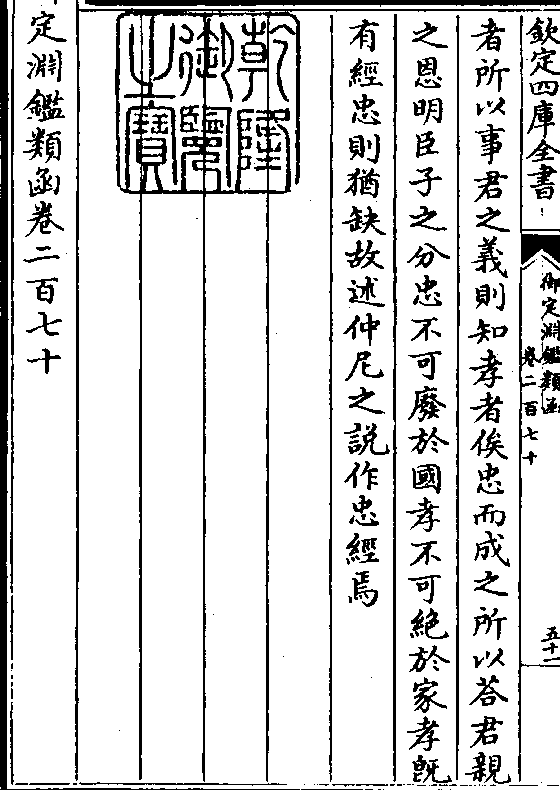 欽定四庫全書
御定淵鑑類函
卷二百七十
五十一
者所以事君之義則知孝者俟忠而成之所以荅君親
之恩明臣子之分忠不可廢於國孝不可絕於家孝旣
有經忠則猶缺故述仲尼之說作忠經焉
乾隆
御覽
之寶
定淵鑑類函卷二百七十